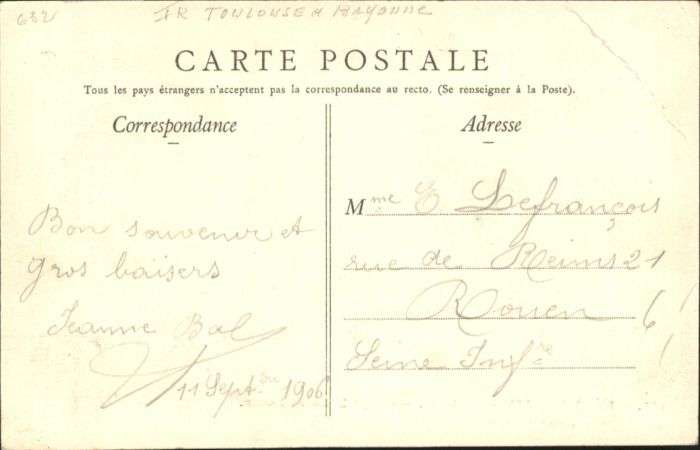 632 FR TOULOUSE A BAYONNE
CARTE POSTALE
Tous les pays étrangers n'acceptent pas la correspondance au recto. (Se renseigner à la Poste).
Correspondance
Adresse
Bon souvenir et
gros baisers
Jeanne Bal
11 Sept.bre 1906
Mme E Lefrançois
rue de Reims 21
Rouen
Seine Infre